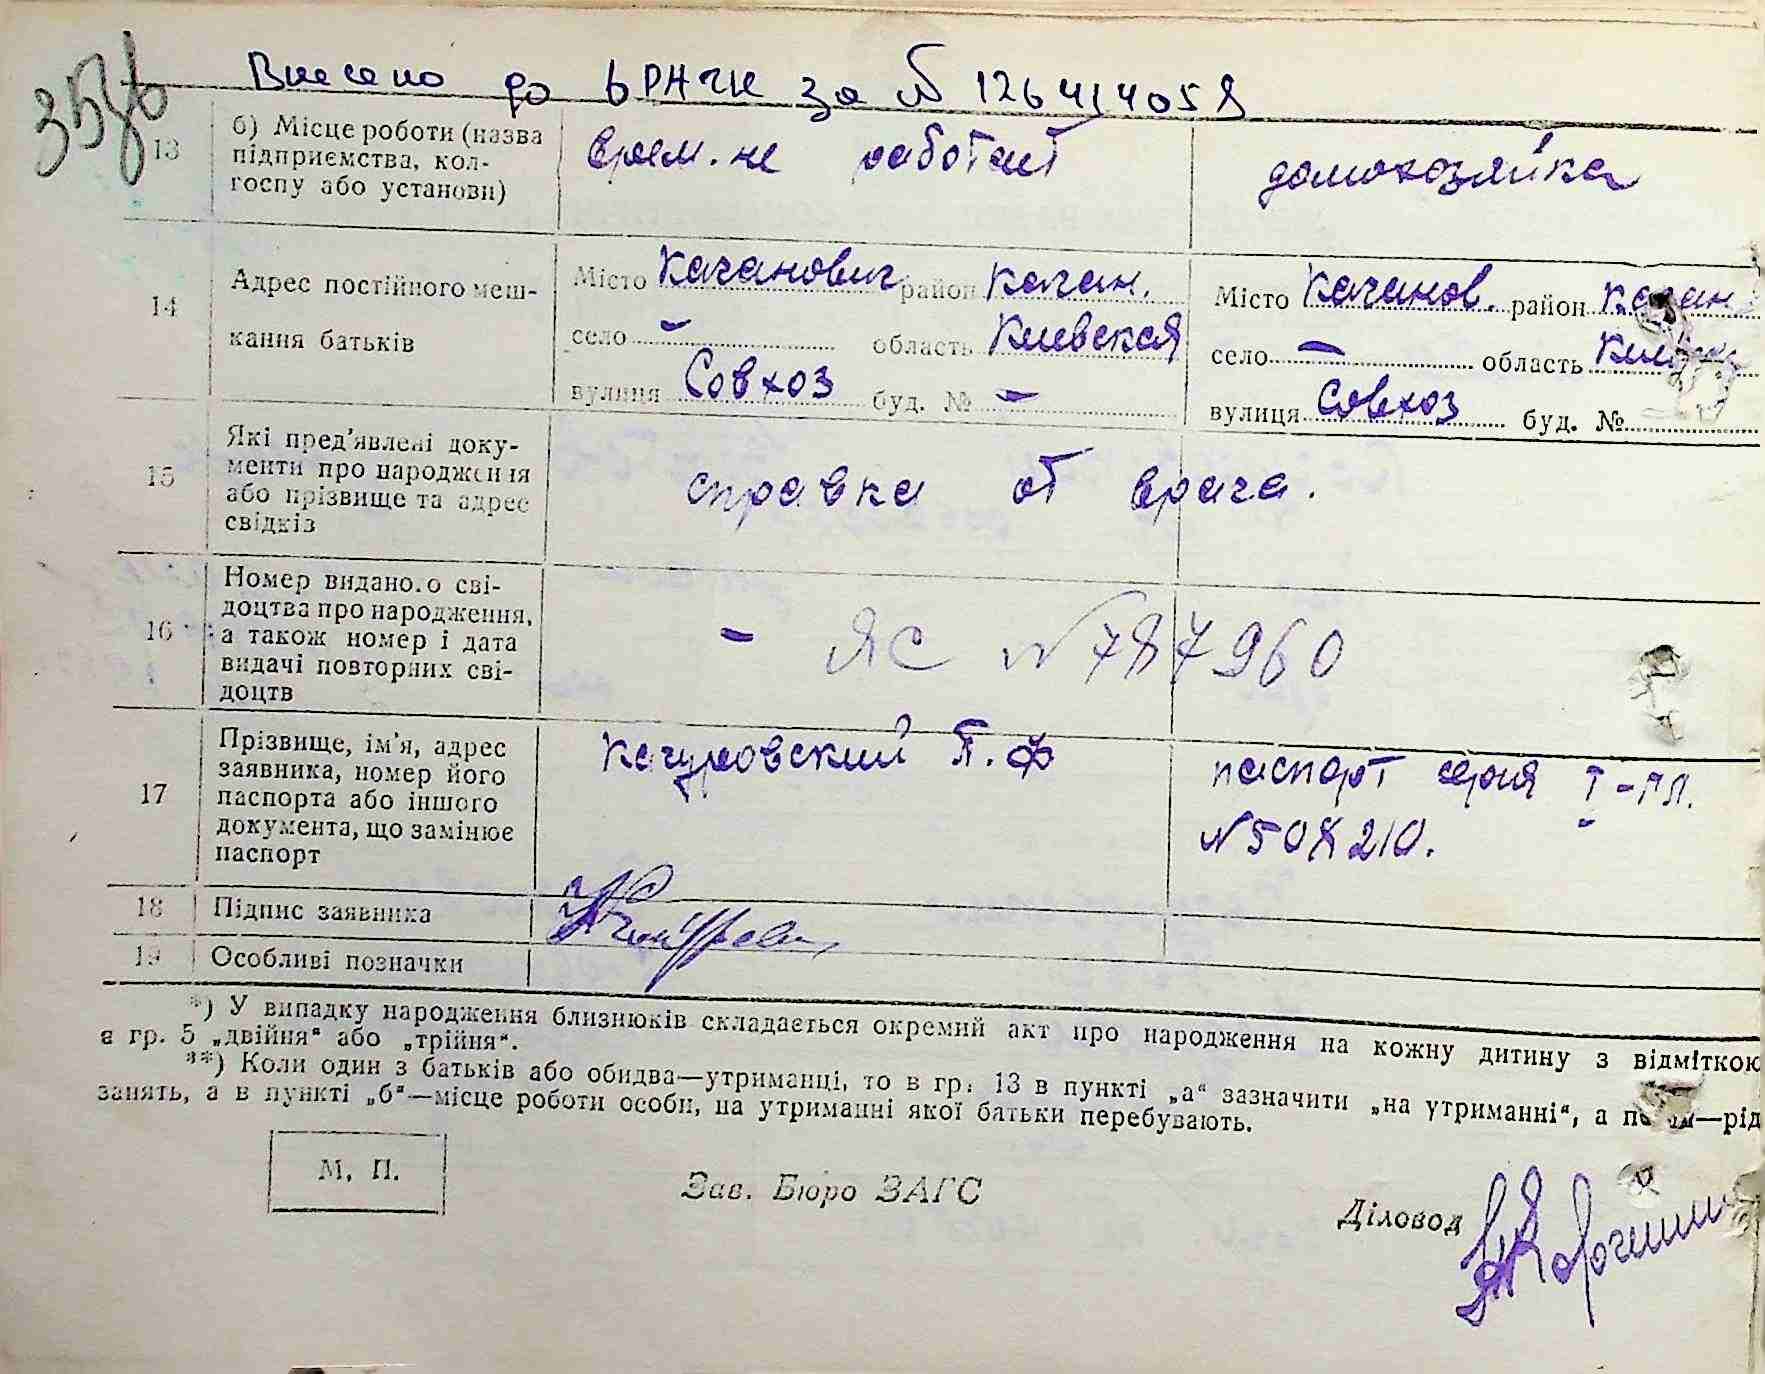 Внесено до ЬРАЧК за № 126414058
13
б) Місце роботи (назва підприємства, колгоспу або установи)
врем. не работает
домохозяйка
14
Адрес постійного мешкання батьків
Місто Качанович район Качан.
село – область Киевская
вулиця Совхоз буд. № –
Місто Качанов. район Качан
село – область
вулиця Совхоз буд. №
15
Які пред'явлені документи про народження або прізвище та адрес свідків
справка от врача.
16
Номер виданого свідоцтва про народження, а також номер і дата видачі повторних свідоцтв
– ЯС № 787960
17
Прізвище, ім'я, адрес заявника, номер його паспорта або іншого документа, що замінює паспорт
Качуровский П. Ф
паспорт серия I-ПЛ.
№ 508210.
18
Підпис заявника
19
Особливі позначки
*) У випадку народження близнюків складається окремий акт про народження на кожну дитину з відміткою
в гр. 5 „двійня“ або „трійня“.
**) Коли один з батьків або обидва—утриманці, то в гр. 13 в пункті „а“ зазначити „на утриманні“, а —рід
занять, а в пункті „б“—місце роботи особи, на утриманні якої батьки перебувають.
М. П.
Зав. Бюро ЗАГС
Діловод